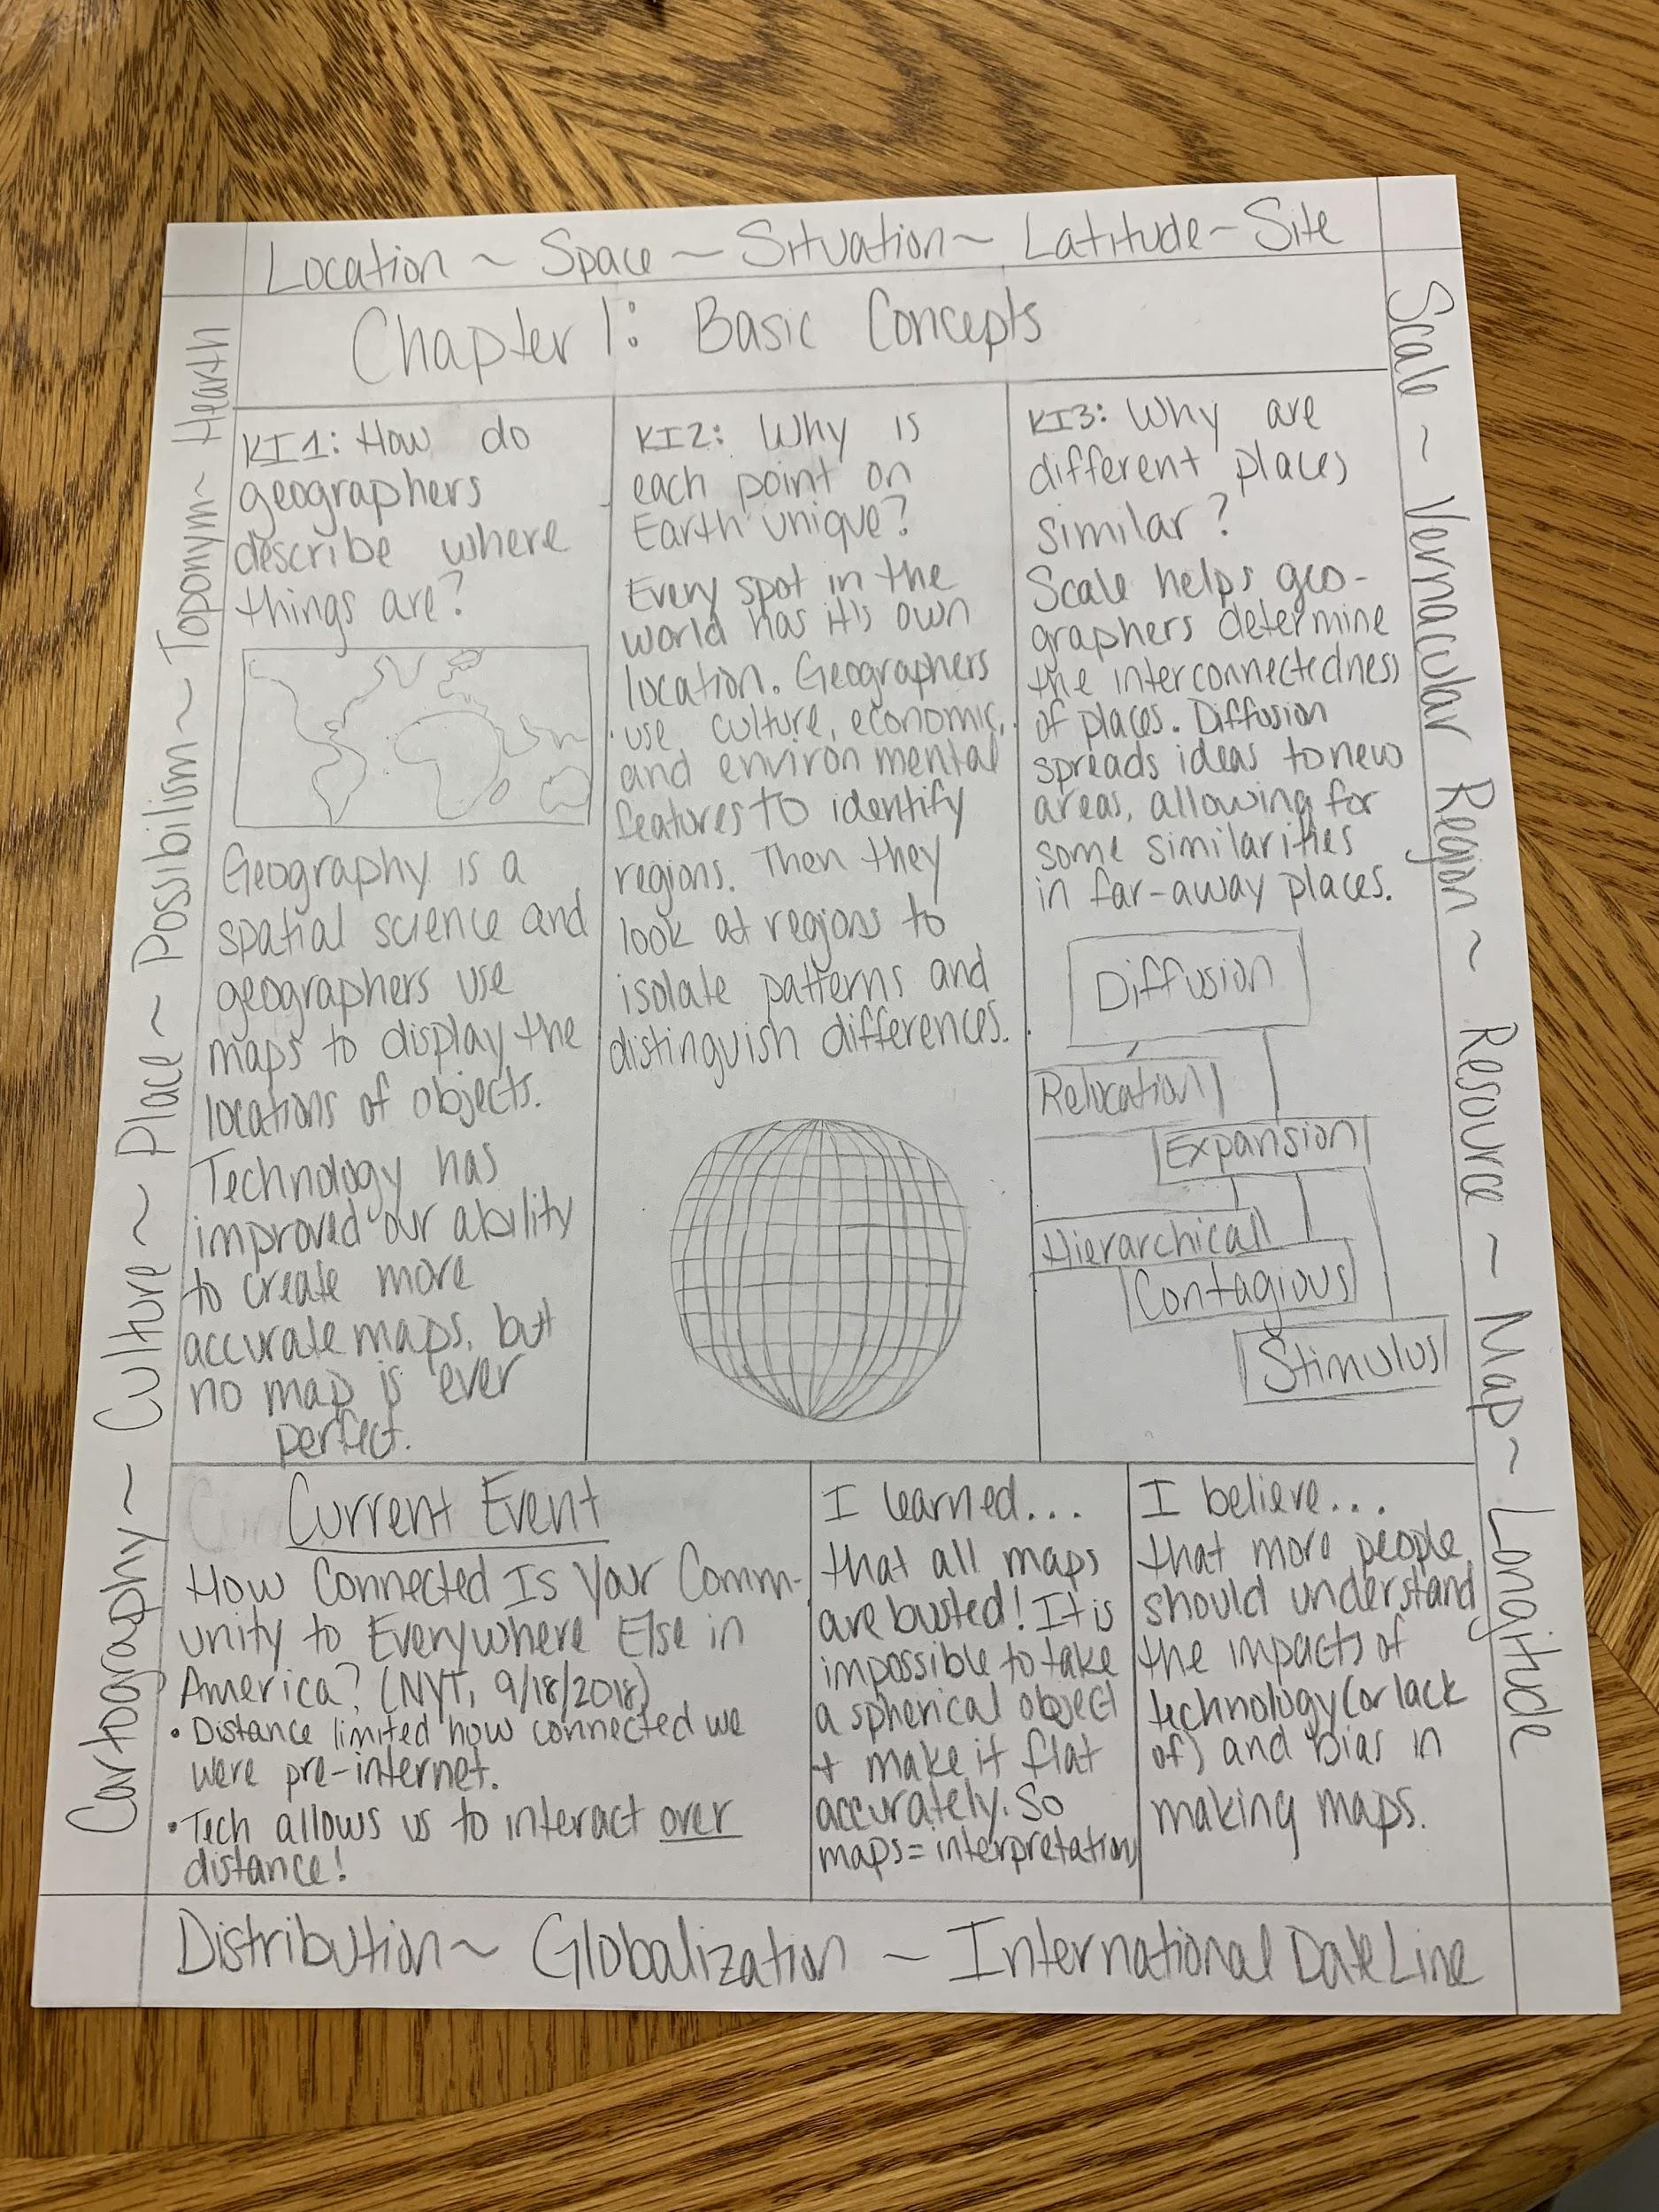 Location ~ Space ~ Situation ~ Latitude ~ Site
Chapter 1: Basic Concepts
Cartography ~ Culture ~ Place ~ Possibilism ~ Toponym ~ Hearth
KI1: How do
geographers
describe where
things are?
Geography is a
spatial science and
geographers use
maps to display the
locations of objects.
Technology has
improved our ability
to create more
accurate maps, but
no map is ever
perfect.
KI2: Why is
each point on
Earth unique?
Every spot in the
world has it's own
location. Geographers
use culture, economic,
and environmental
features to identify
regions. Then they
look at regions to
isolate patterns and
distinguish differences.
KI3: Why are
different places
similar?
Scale helps geo-
graphers determine
the interconnectedness
of places. Diffusion
spreads ideas to new
areas, allowing for
some similarities
in far-away places.
Diffusion
Relocation
Expansion
Hierarchical
Contagious
Stimulus
Scale ~ Vernacular Region ~ Resource ~ Map ~ Longitude
Current Event
How Connected Is Your Comm-
unity to Everywhere Else in
America? (NYT, 9/18/2018)
• Distance limited how connected we
were pre-internet.
• Tech allows us to interact over
distance!
I learned...
that all maps
are busted! It is
impossible to take
a spherical object
+ make it flat
accurately. So
maps = interpretation
I believe...
that more people
should understand
the impacts of
technology (or lack
of) and bias in
making maps.
Distribution ~ Globalization ~ International Date Line